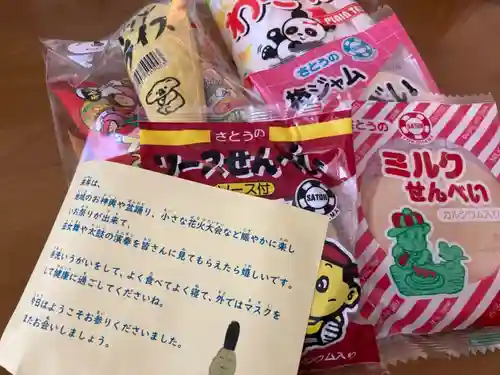 わた
PLAIN TA
さとうの
梅ジャム
せんべい
SATOH
さとうの
ソースせんべい
ソース付
SATOH
カルシウム入り
さとうの
SATOH
ミルク
せんべい
カルシウム入り
来年は、
地域のお神輿や盆踊り、小さな花火大会など賑やかに楽し
いお祭りが出来て、
巫女舞や太鼓の演奏を皆さんに見てもらえたら嬉しいです。
手洗いうがいをして、よく食べてよく寝て、外ではマスクを
して健康に過ごしてくださいね。
今日はようこそお参りくださいました。
またお会いしましょう。